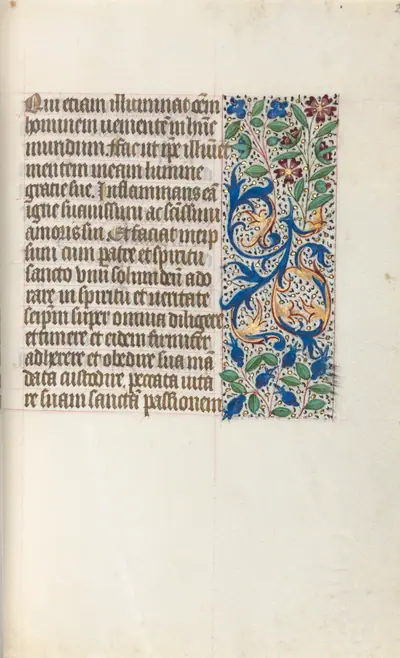 Qui etiam illuminat oēm
hominem uenientē in hūc
mundum. Faciat ipē illuīet
mentem meam lumine
gratie sue. Inflammans eā
igne suauissimi ac sc̄issimi
amoris sui. Et faciat me ip̄
sum cum patre et spiritu
sancto vnū solum deū ado
rare in spiritu et ueritate
seip̄m super omnia diligere
et timere et eidem firmiter
adherere et obedire sua mā
data custodire. peccata uita
re suam sanctā passionem